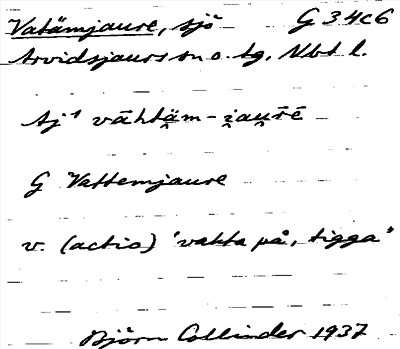 Vatämjaure, sjö G 34c6
Arvidsjaurs sn o. tg, Nbt l.
Aj¹ vāhtä̭m-i̯au̯rē
G Vattemjaure
v. (actio) 'vakta på, tigga'
Björn Collinder 1937